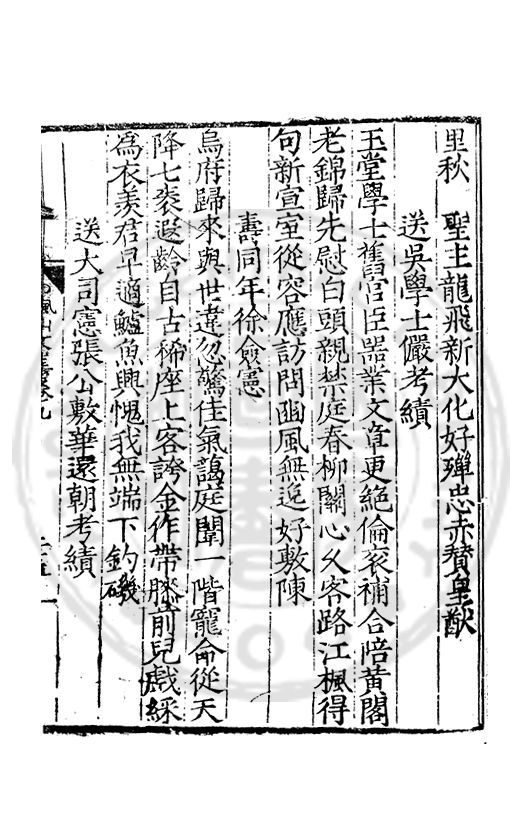 里秋　聖主龍飛新大化好殫忠赤賛皇猷
送吳學士儼考績
玉堂學士舊宮臣噐業文章更絶倫衮補合陪黄閣
老錦歸先慰白頭親禁庭春柳關心久客路江楓得
句新宣室從容應訪問豳風無逸好敷陳
壽同年徐僉憲
烏府歸來與世違忽驚佳氣藹庭闈一階寵命從天
降七袠遐齡自古稀座上客誇金作帶膝前兒戱綵
爲衣羨君早適鱸魚興愧我無端下釣磯
送大司憲張公敷華還朝考績